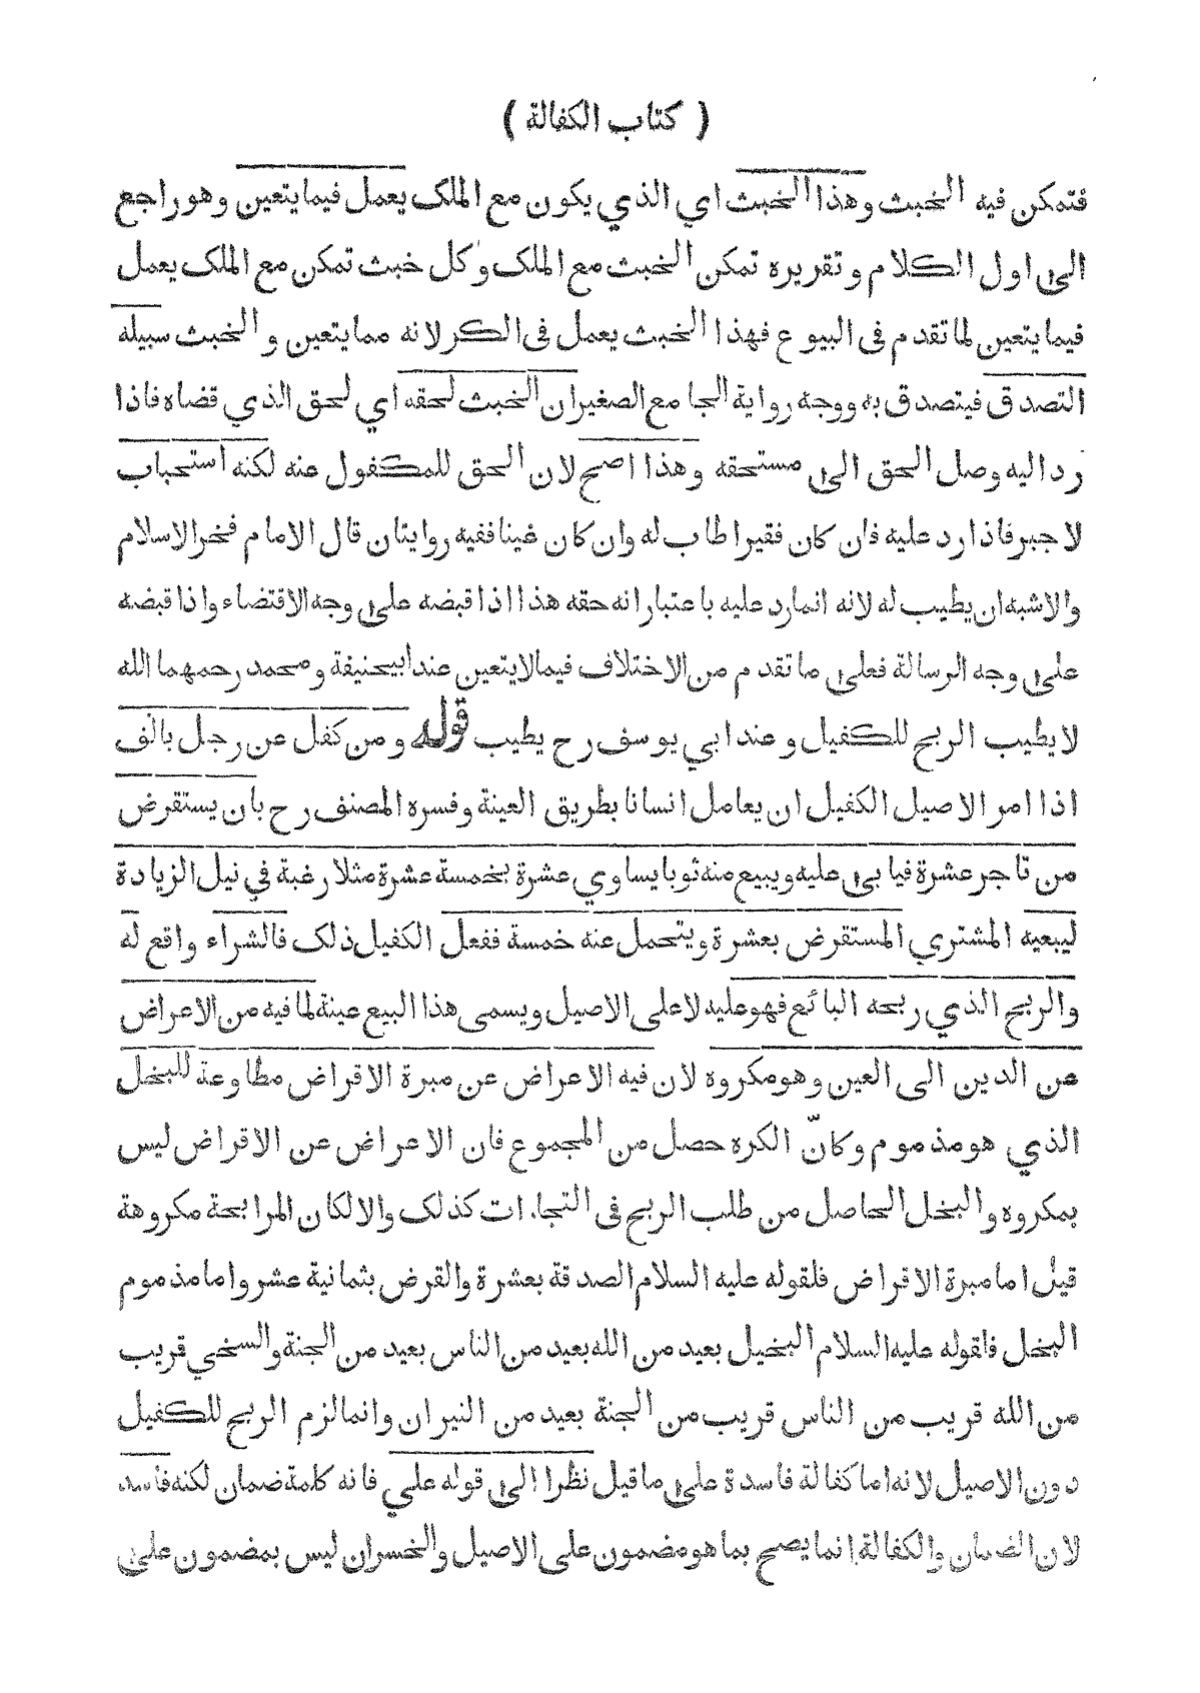 ( كتاب الكفالة )
فتمكن فيه الخبث وهذا الخبث اي الذي يكون مع الملك يعمل فيما يتعين وهو راجع
الى اول الكلام و تقريره تمكن الخبث مع الملك وكل خبث تمكن مع الملك يعمل
فيما يتعين لما تقدم فى البيوع فهذا الخبث يعمل فى الكر لانه مما يتعين و الخبث سبيله
التصدق فيتصدق به ووجه رواية الجامع الصغير ان الخبث لحقه اي لحق الذي قضاه فاذا
رد اليه وصل الحق الى مستحقه وهذا اصح لان الحق للمكفول عنه لكنه استحباب
لا جبر فاذا رد عليه فان كان فقيرا طاب له وان كان غنيا ففيه روايتان قال الامام فخر الاسلام
والاشبه ان يطيب له لانه انما رد عليه باعتبار انه حقه هذا اذا قبضه على وجه الاقتضاء واذا قبضه
على وجه الرسالة فعلى ما تقدم من الاختلاف فيما لا يتعين عند ابيحنيفة و محمد رحمهما الله
لا يطيب الربح للكفيل و عند ابي يوسف رح يطيب قوله و من كفل عن رجل بالف
اذا امر الاصيل الكفيل ان يعامل انسانا بطريق العينة وفسره المصنف رح بان يستقرض
من تاجر عشرة فيابى عليه ويبيع منه ثوبا يساوي عشرة بخمسة عشرة مثلا رغبة في نيل الزيادة
ليبعيه المشتري المستقرض بعشرة ويتحمل عنه خمسة ففعل الكفيل ذلك فالشراء واقع له
والربح الذي ربحه البائع فهو عليه لا على الاصيل ويسمى هذا البيع عينة لما فيه من الاعراض
عن الدين الى العين وهو مكروه لان فيه الاعراض عن مبرة الاقراض مطاوعة للبخل
الذي هو مذموم وكانّ الكره حصل من المجموع فان الاعراض عن الاقراض ليس
بمكروه والبخل الحاصل من طلب الربح فى التجارات كذلك والا لكان المرابحة مكروهة
قيل اما مبرة الاقراض فلقوله عليه السلام الصدقة بعشرة والقرض بثمانية عشر واما مذموم
البخل فلقوله عليه السلام البخيل بعيد من الله بعيد من الناس بعيد من الجنة والسخي قريب
من الله قريب من الناس قريب من الجنة بعيد من النيران وانما لزم الربح للكفيل
دون الاصيل لانه اما كفالة فاسدة على ما قيل نظرا الى قوله علي فانه كلمة ضمان لكنه فاسد
لان الضمان والكفالة انما يصح بما هو مضمون على الاصيل والخسران ليس بمضمون على